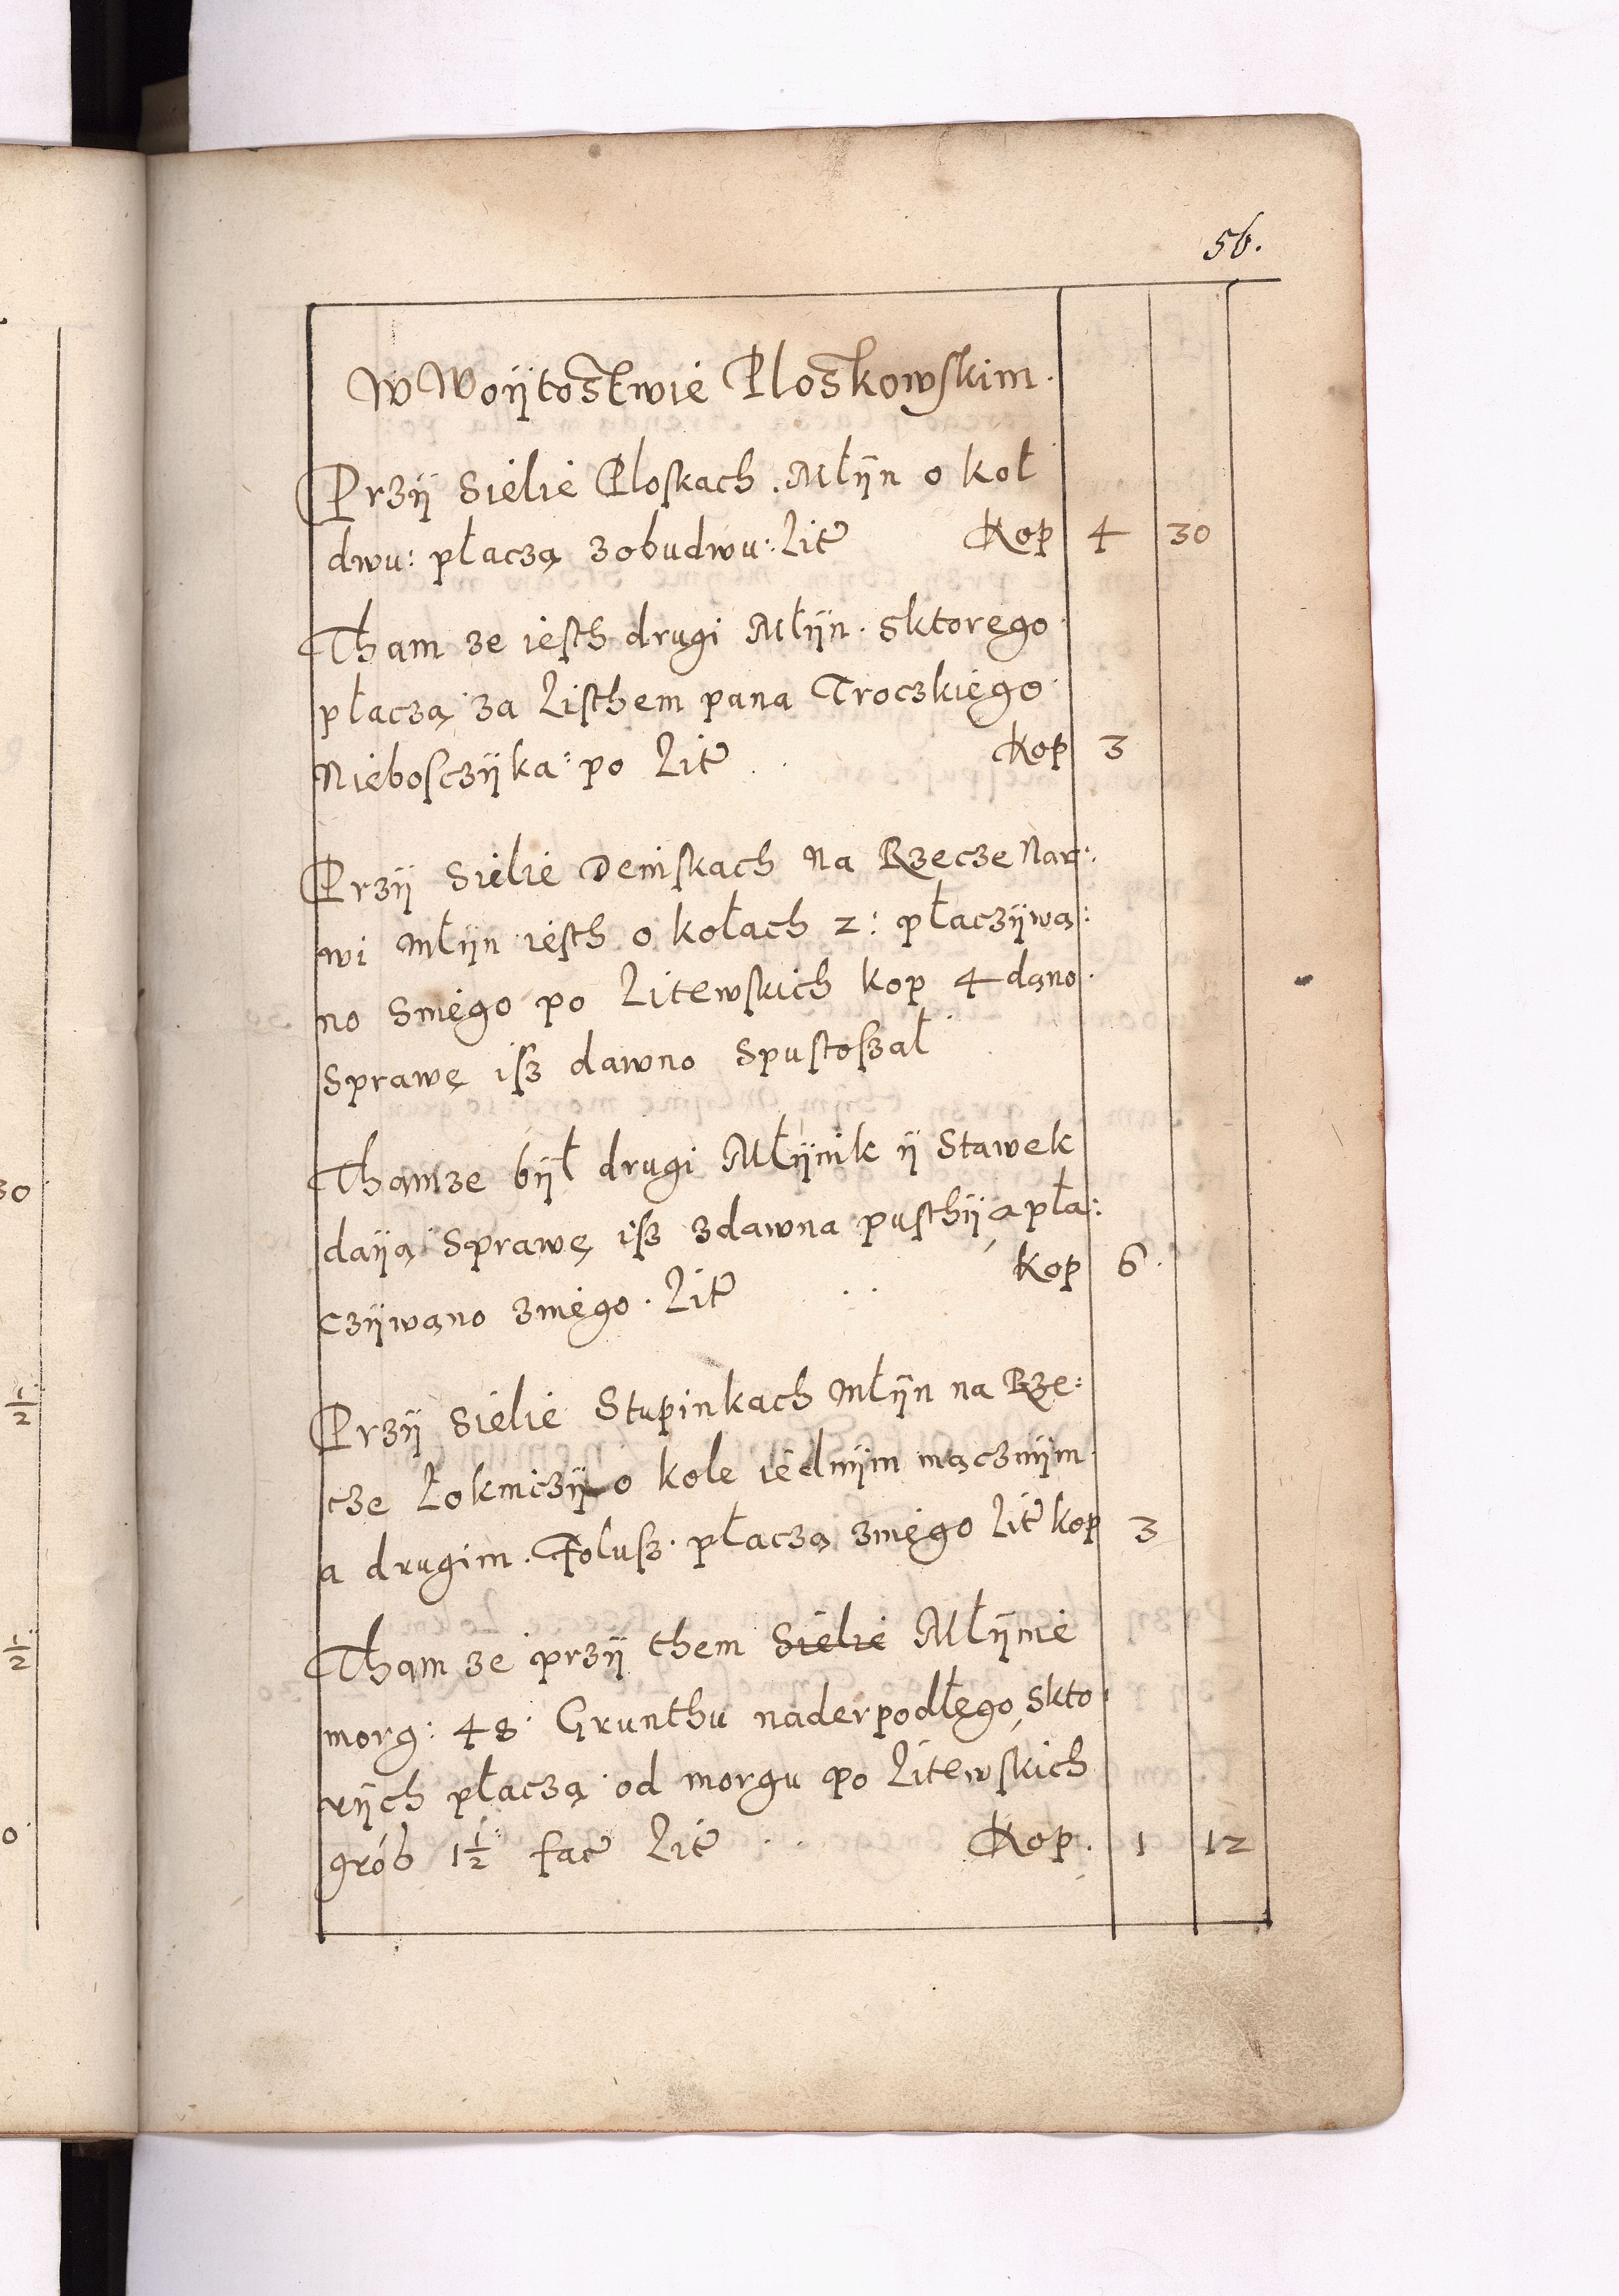 56.
W Woÿtostwie Ploskowskim.
Przÿ Sielie Ploskach. Młÿn o koł
dwu: płaczą zobudwu: Lit Kop 4 30
Tham ze iesth drugi Młÿn. sktorego
płaczą za Listhem pana Troczkiego
Nieboszczÿka: po Lit Kop 3
Przÿ Sielie Deniskach Na Rzecze Nar:
wi młÿn iesth o kołach 2: płaczÿwa:
no Sniego po Litewskich kop 4 dano
Sprawę isz dawno Spustoszał
Thamze bÿł drugi Młÿnik ÿ Stawek
daÿą Sprawę isz zdawna pusthÿ, a pła:
czÿwano zniego. Lit kop 6.
Przÿ Sielie Stupinkach Młÿn na Rze:
cze Łokniczÿ o kole iednÿm mącznÿm
a drugim. Folusz. płaczą zniego Lit kop 3
Tham ze przÿ them Sielie Młÿnie
morg: 48. Grunthu naderpodłego, skto
rÿch płaczą od morgu po Litewskich
grob 1½ fac Lit Kop. 1 12
30
½
½
0